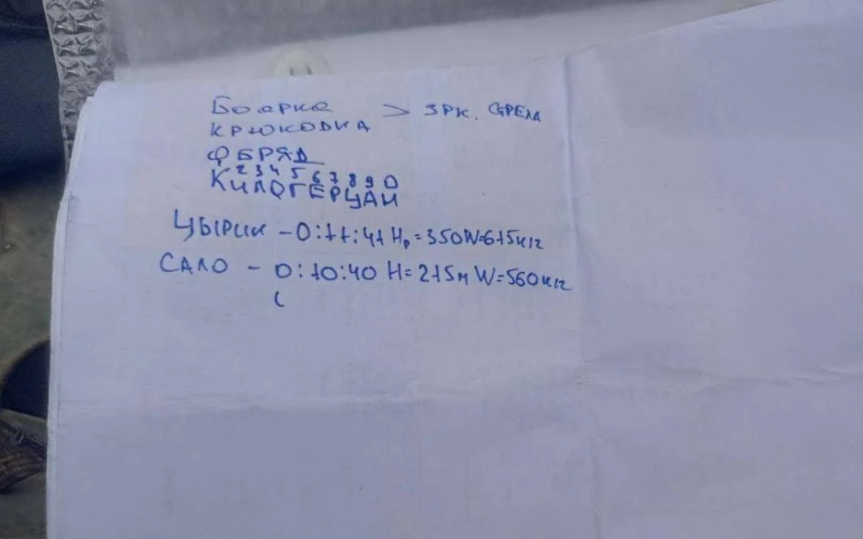 Боярка > ЗРК. СТРЕЛА
КРЮКОВКА
ОБРЯД
2 3 4 5 6 7 8 9 0
КИЛОГЕРЦАИ
ЦЫРИК - 0:11:41 Hр=350 W=615 кг
САЛО - 0:10:40 H=215м W=560 кг
(